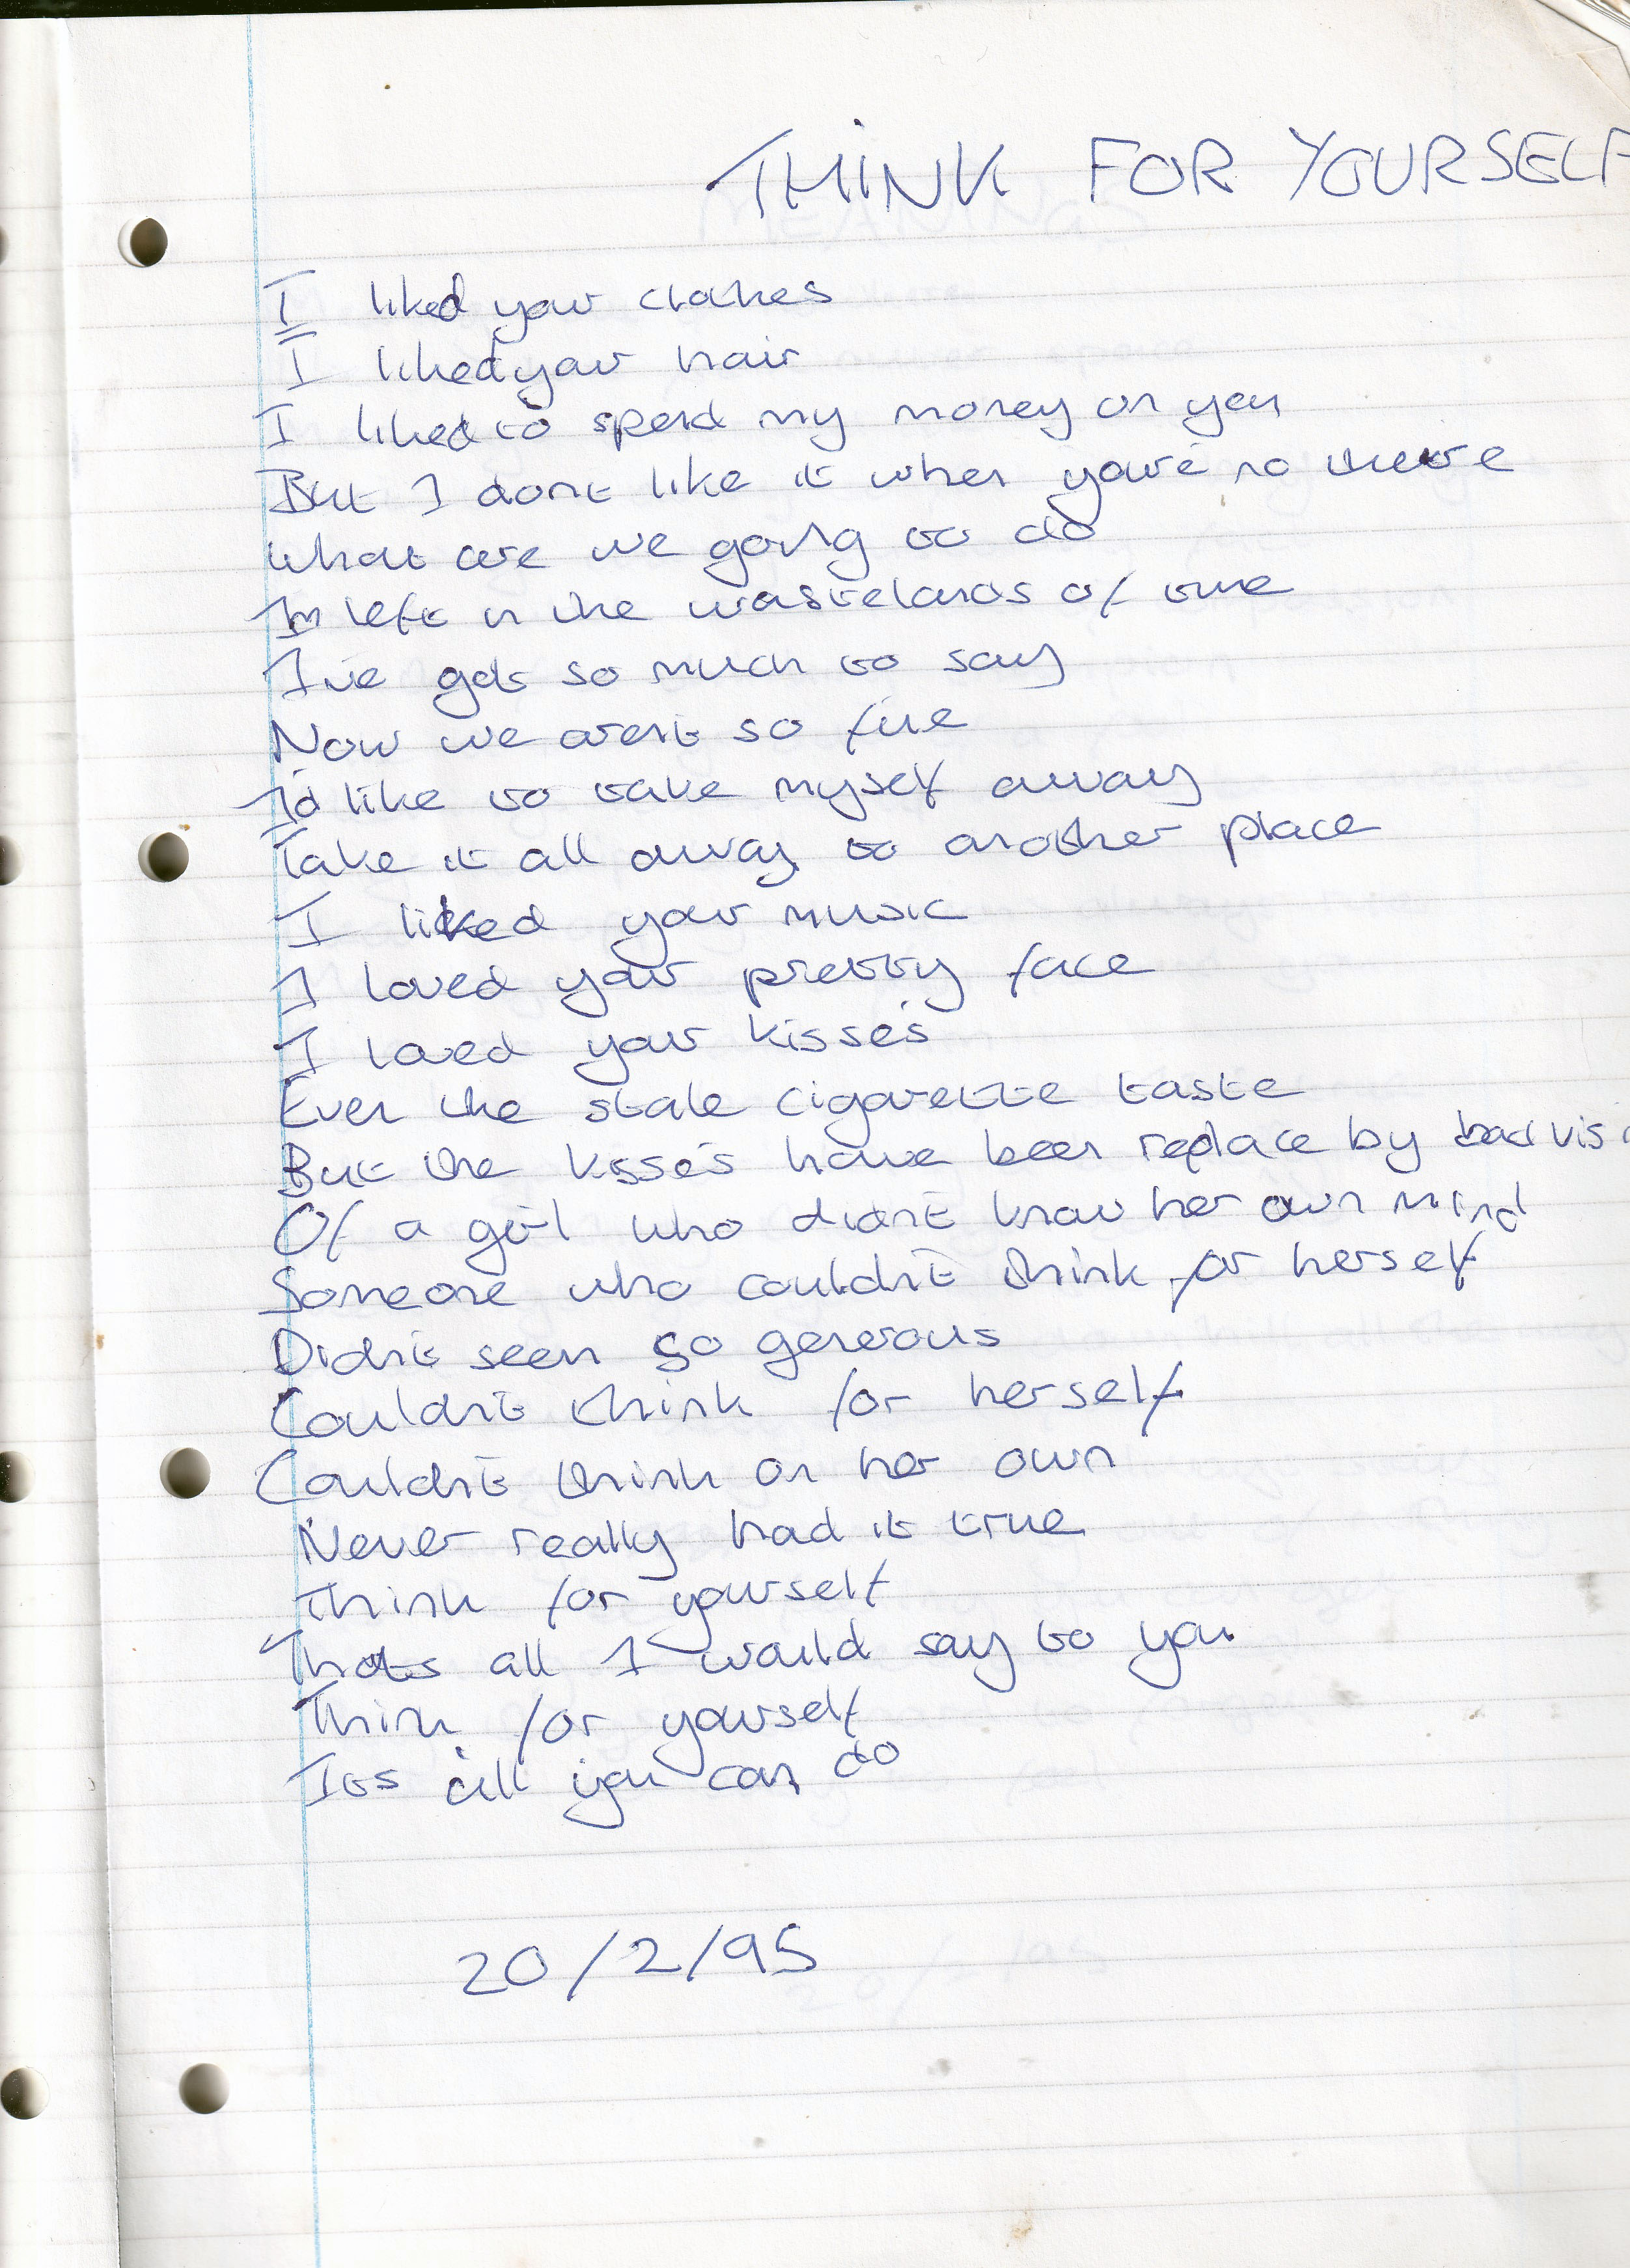 THINK FOR YOURSELF
I liked your clothes
I liked your hair
I liked to spend my money on you
But I dont like it when you're no there
What are we going to do
Im left in the wastelands of time
I've got so much to say
Now we aren't so fine
Id like to take myself away
Take it all away to another place
I liked your music
I loved your pretty face
I loved your kisses
Even the stale cigarette taste
But the kisses have been replace by bad
Of a girl who didn't know her own mind
Someone who couldn't think for herself
Didn't seem so generous
Couldn't think for herself
Couldn't think on her own
Never really had it true
Think for yourself
Thats all I would say to you
Think for yourself
Its all you can do
20/2/95